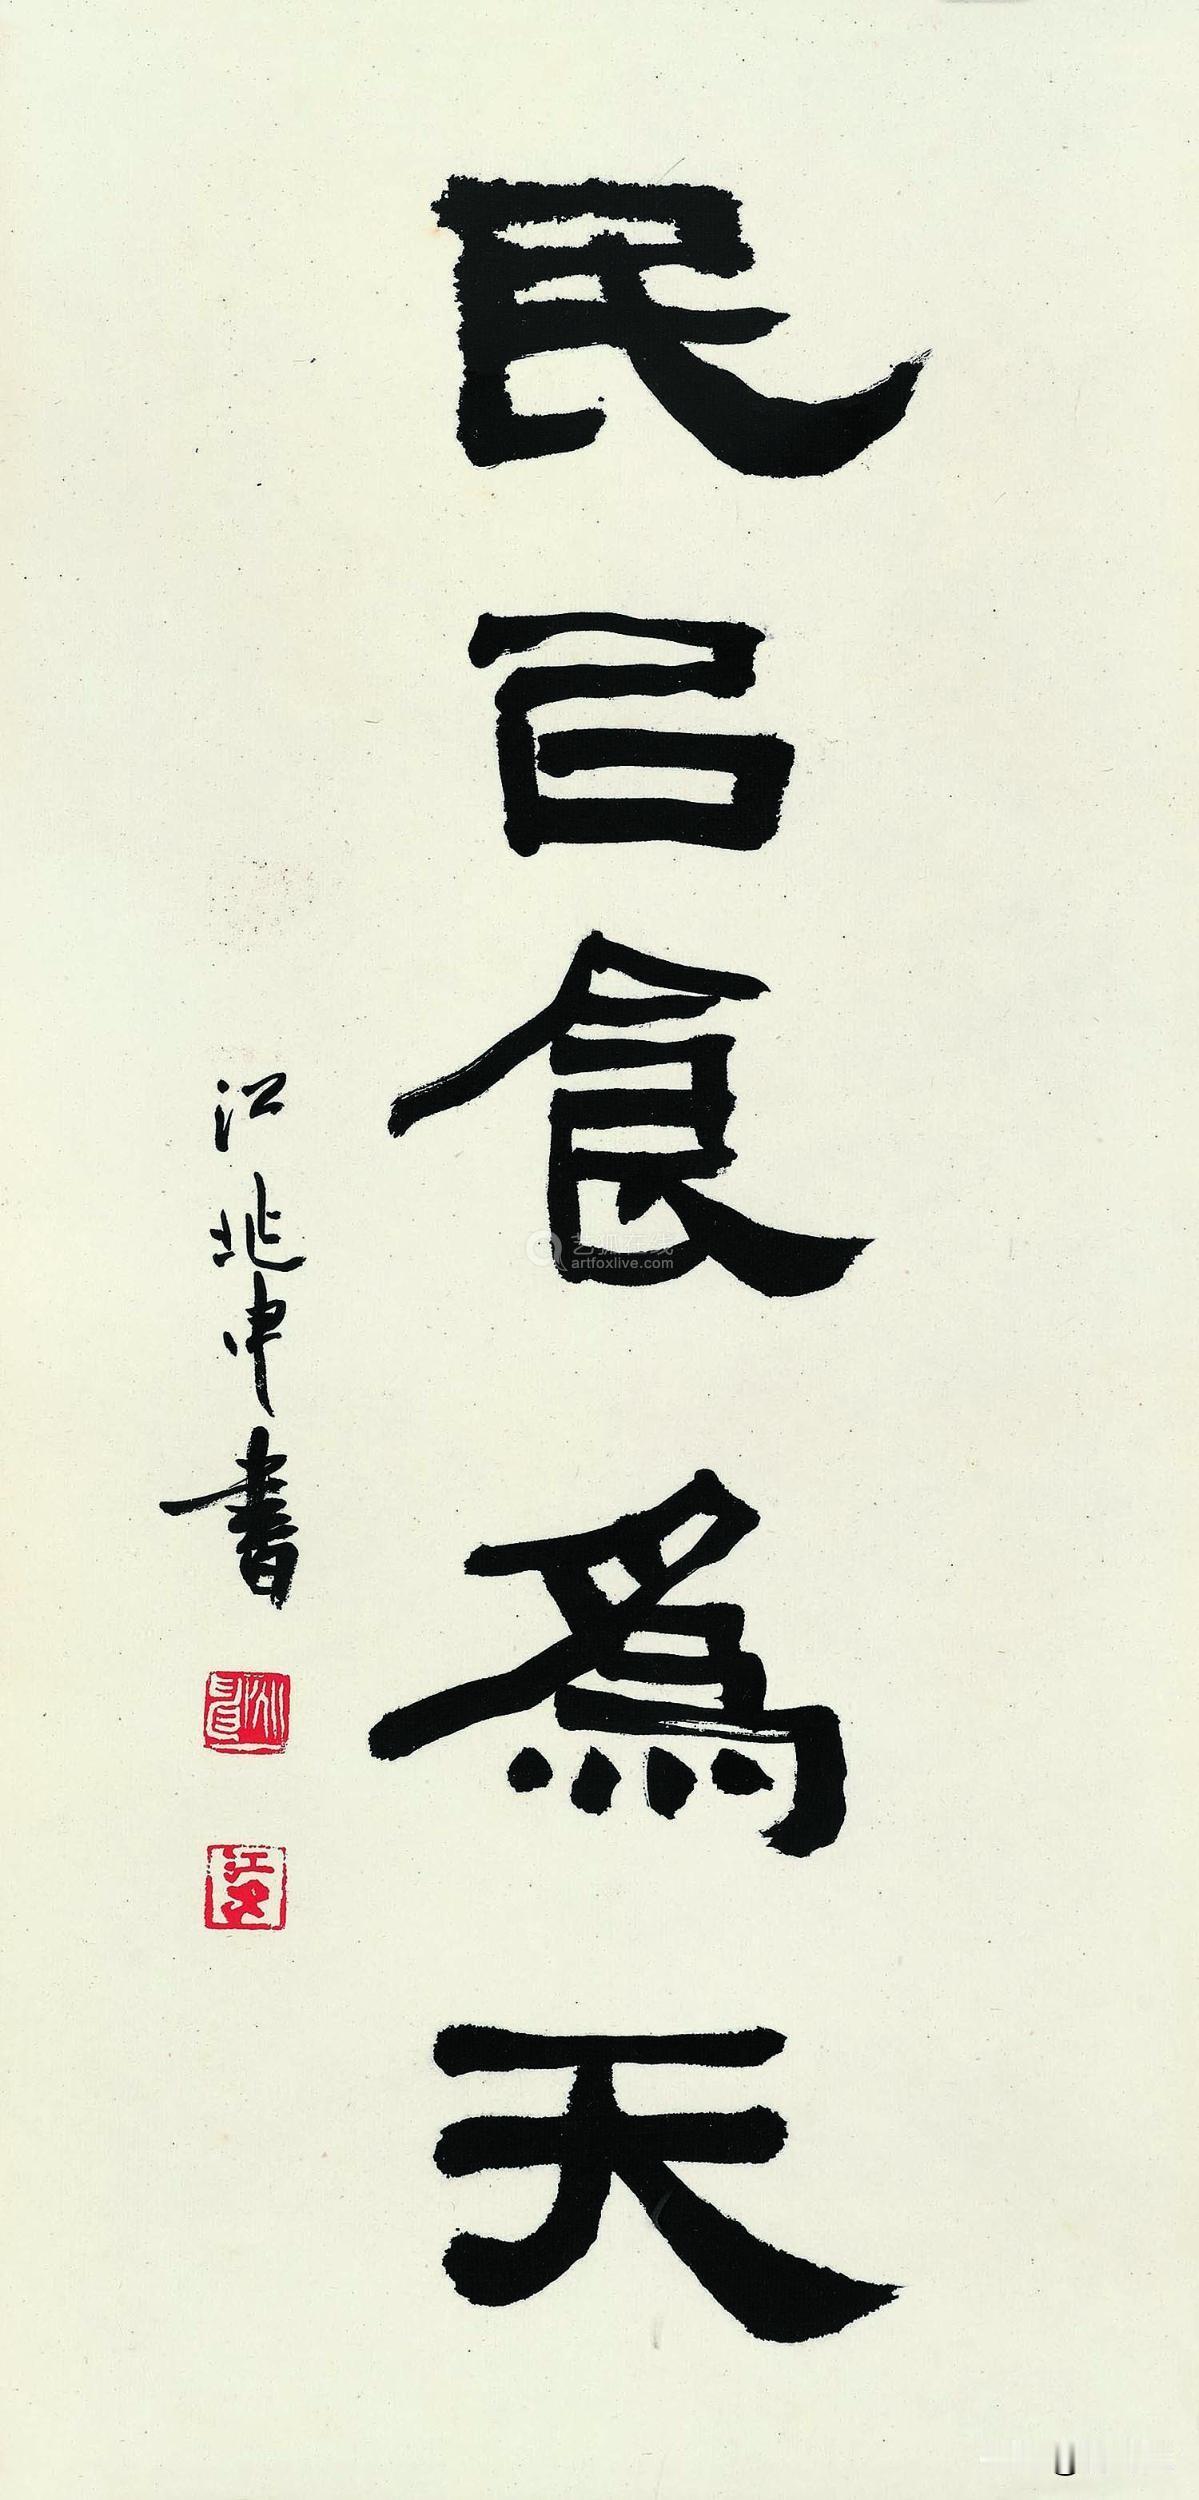 民㠯食為天
江兆申書
艺狐在线
artfoxlive.com